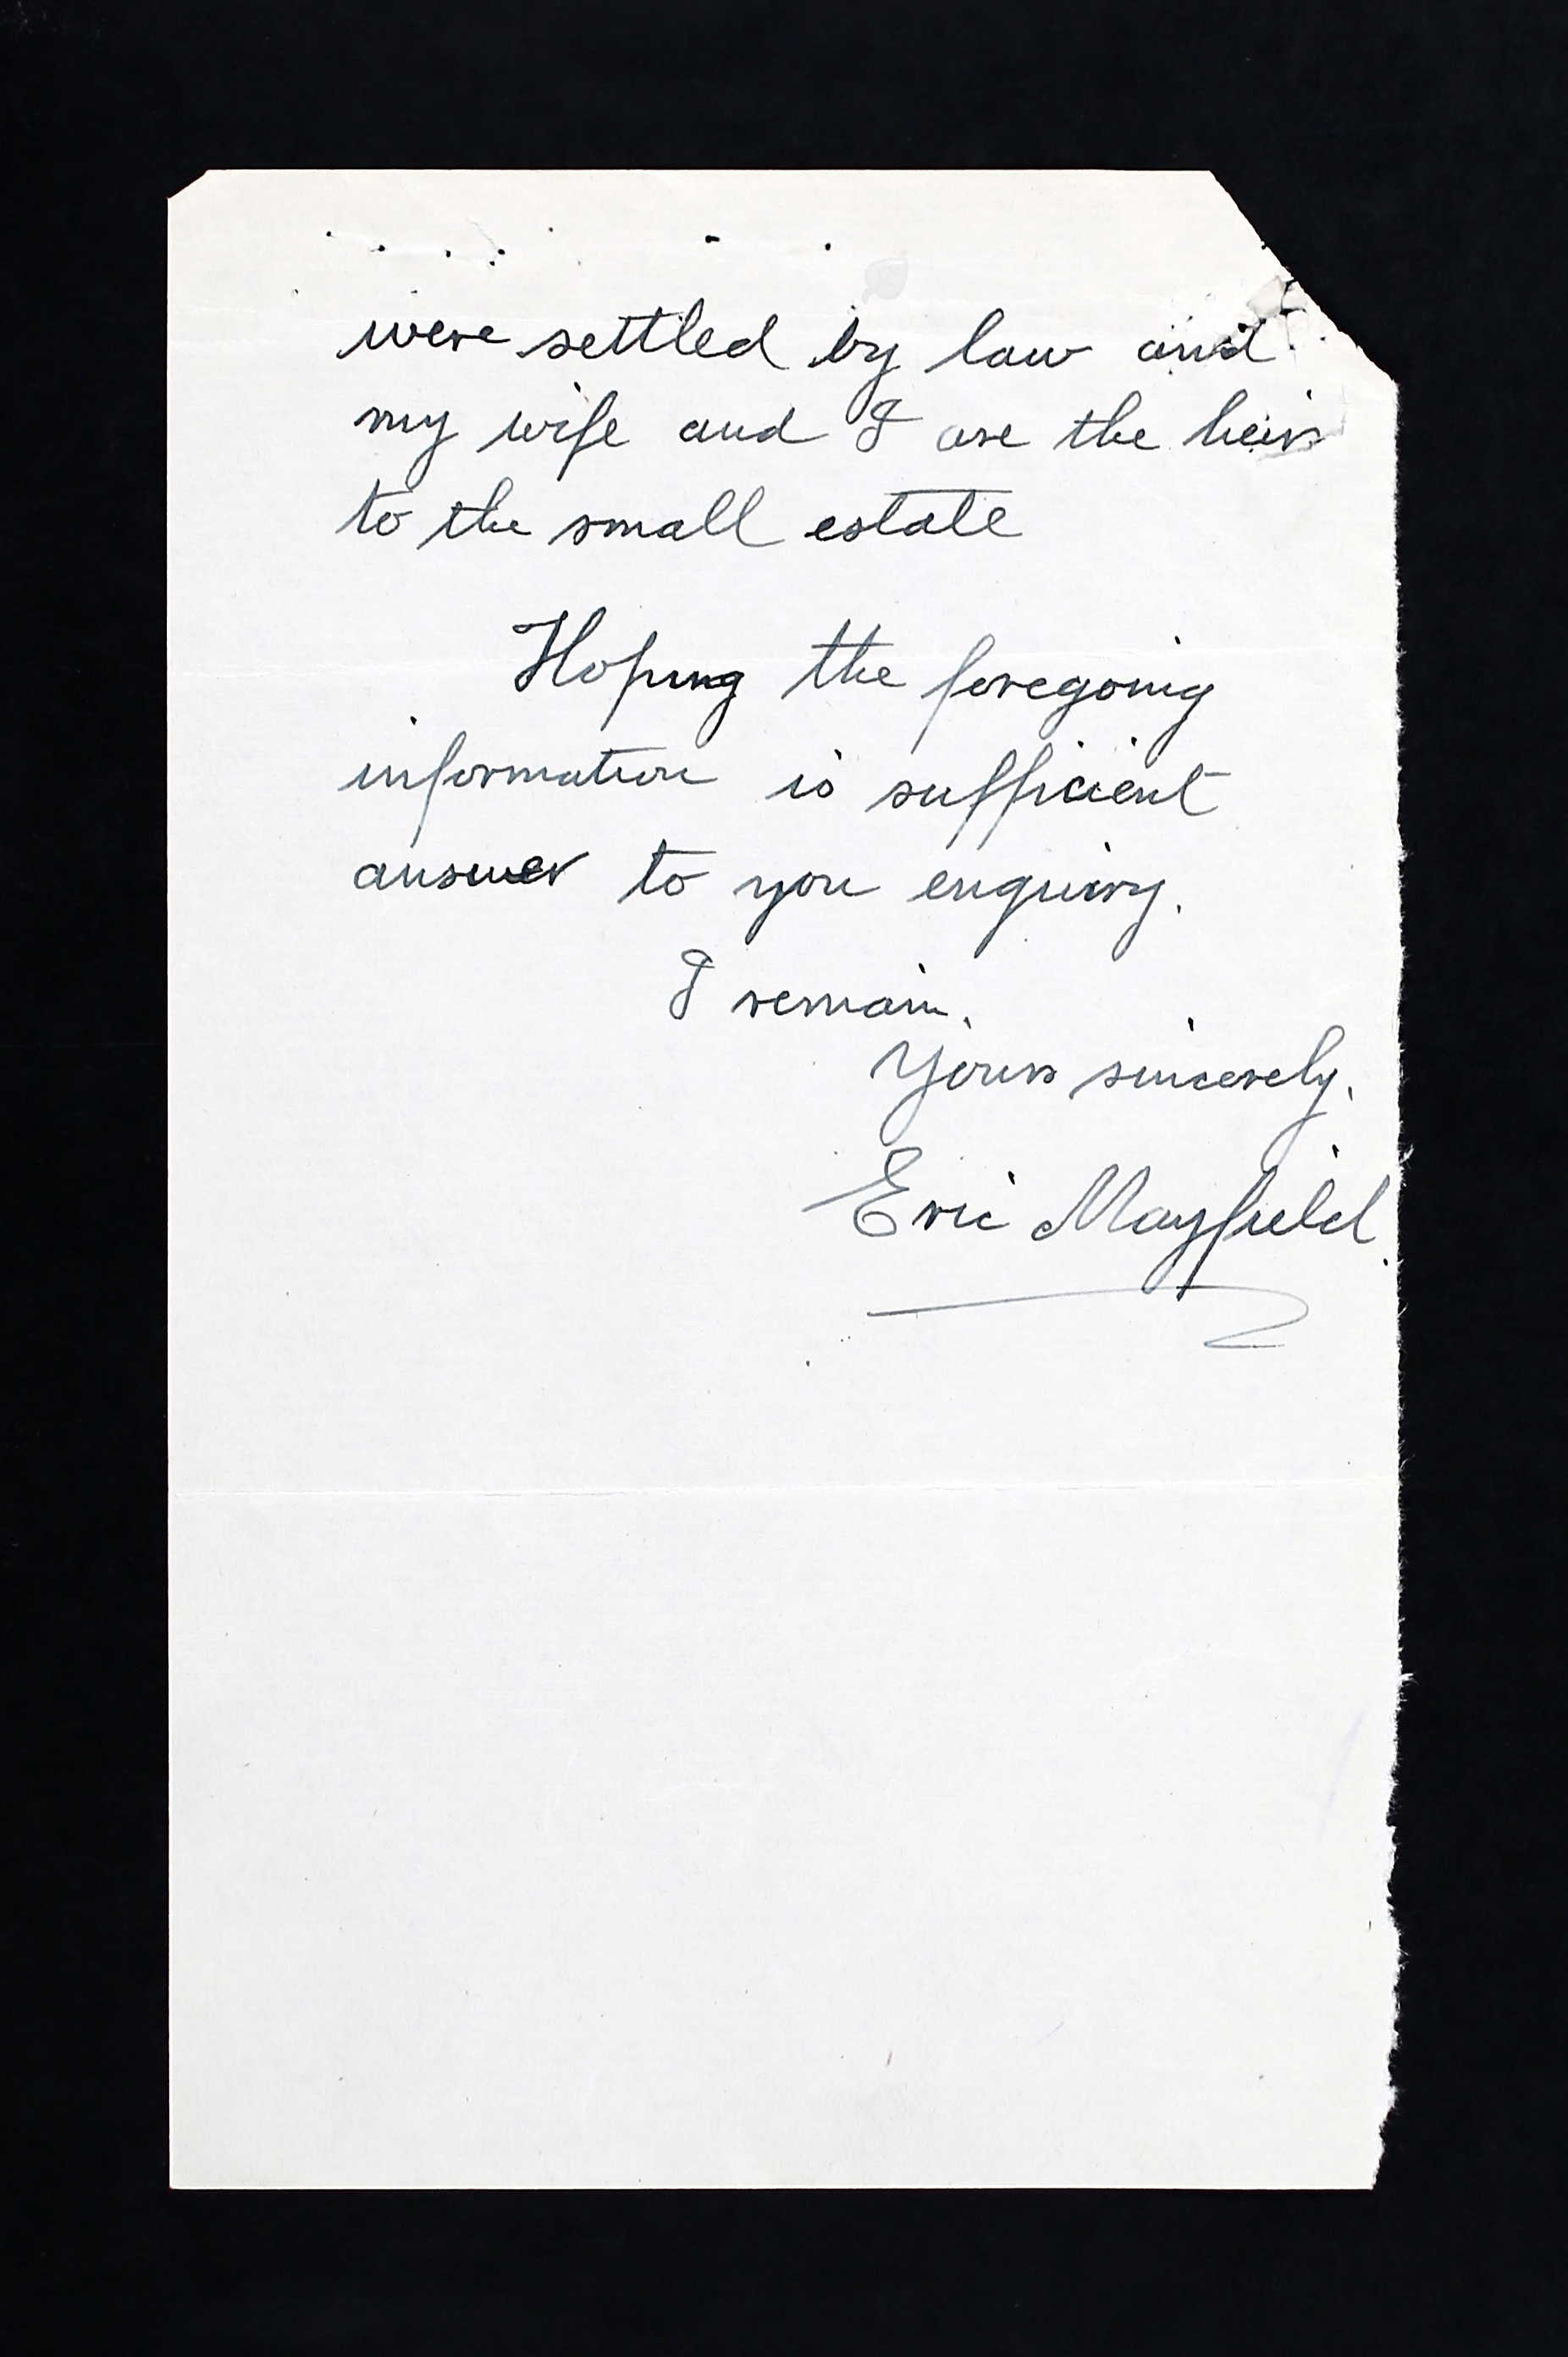 were settled by law and
my wife and I are the heirs
to the small estate
Hoping the foregoing
information is sufficient
answer to you enquiry.
I remain.
Yours sincerely.
Eric Mayfield.